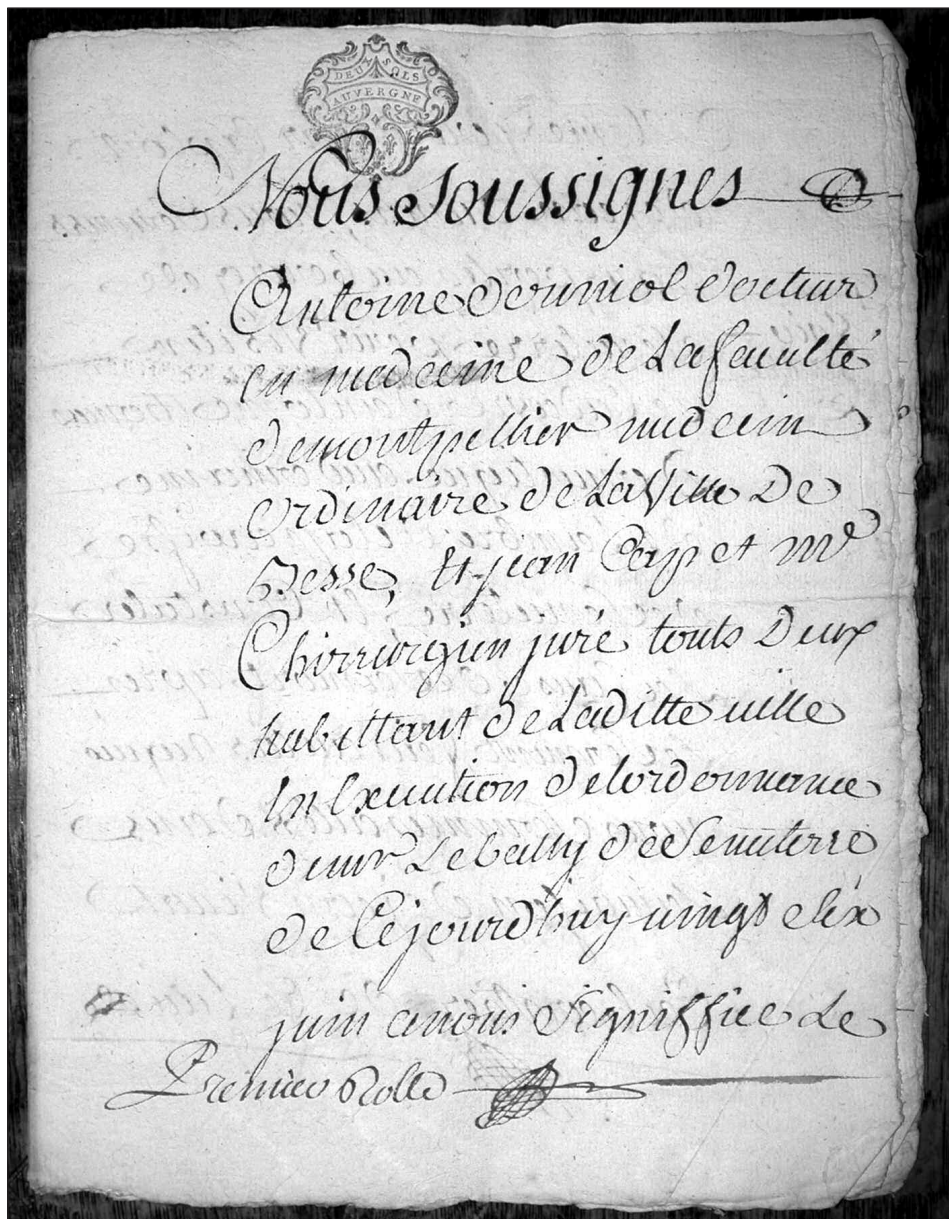 DEUX SOLS
AUVERGNE
Nous soussignes
Antoine docteur
en medecine de La faculté
demontpellier medecin
ordinaire de La Ville De
Besse, Et jean Cap et me
Chirrurgien juré touts Deux
habittant de Laditte ville
En Execution de lordonnance
de mr Le bailly de Senneterre
de Cejourdhuy vingt six
juin anous signiffiee Le
Premier Rolle